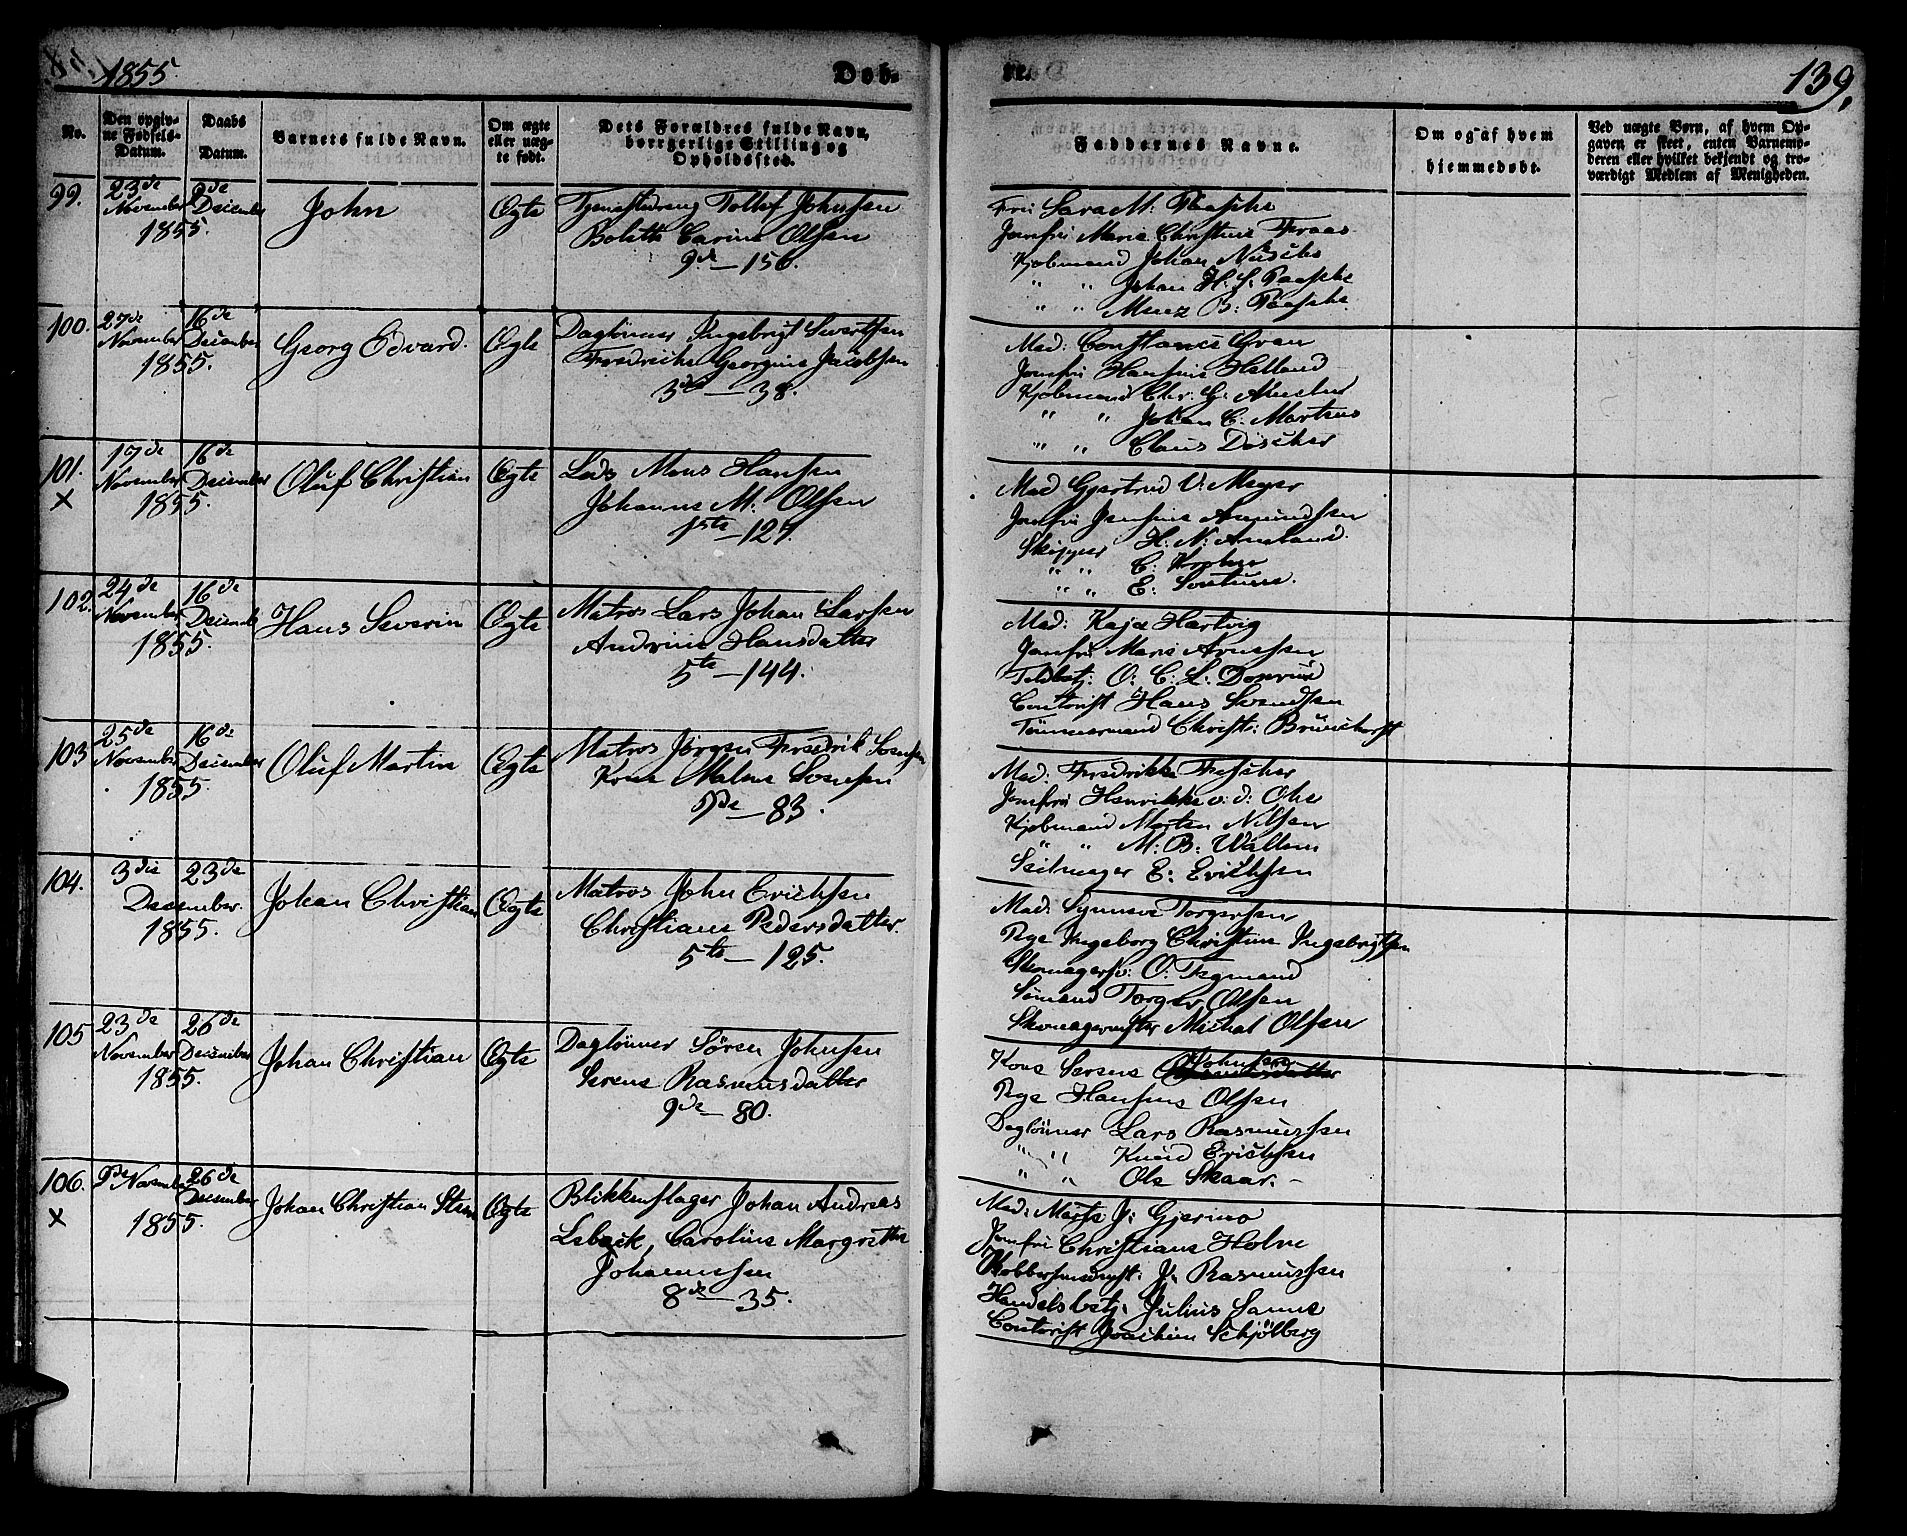 1855
Døb-
te.
139.
No.
Den opgiv-
ne Fødsels-
Datum.
Daabs
Datum.
Barnets fulde Navn.
Om ægte
eller uæg-
te født.
Dets Forældres fulde Navn,
borgerlige Stilling og
Opholdssted.
Faddernes Navne.
Om og af hvem
hjemmedøbt.
Ved uægte Børn, af hvem Op-
gaven er skeet, enten Barnemo-
deren eller hvilket bekjendt og tro-
værdigt Medlem af Menigheden.
99.
23de November 1855.
2de December
John
Ægte
Tjenestedreng Tollef Johnsen
Bolette Carine Olsen
9de - 156.
Frü Sara M: Paasche
Jomfrü Marie Christine Fraas
Kjøbmand Johan
" " Johan H. S. Paasche
" " B: Paasche
100.
27de November 1855.
16de December
Georg Edvard.
Ægte
Daglønner Ingebrigt Sivertsen
Fredrikke Georgine Jacobsen
3die - 38.
Mad: Constance Gran
Jomfrü Hansine Helland
Kjøbmand Chr. G.
" " Johan C. Martens
" " Claus Discher
101.
X
17de November 1855.
16de December
Olüf Christian
Ægte
Lods Mons Hansen
Johanne M. Olsen
1ste - 127.
Mad Gjertrud V: Meyer
Jomfrü Jensine Amündsen
Skipper H: N:
" " C: Krohn
" " E:
102.
24de November 1855.
16de Decemb
Hans Severin
Ægte
Matros Lars Johan Larsen
Andrine Hansdatter
5te - 144.
Mad: Kaja Hartvig
Jomfrü Marie Arnesen
Toldbetj: O: C: L:
Contorist Hans Svendsen
Tømmermand Christ: Brünchorst
103
25de November 1855.
16de December
Olüf Martin
Ægte
Matros Jørgen Fredrik
Kone Malene
- 83.
Mad: Fredrikke Fischer
Jomfrü Henrikke v: d: Ohe
Kjøbmand Morten Nilsen
" " M: B: Wallem
Seilmager E: Erichsen
104.
3die December 1855.
23de
Johan Christian
Ægte
Matros John Erichsen
Christiane Pedersdatter.
5te - 125.
Mad: Synneve Torgersen
Pige Ingeborg Christine Ingebrigtsen
Skomagersv: O: Tegmand
Sømand Torger Olsen
Skomagermester Michal Olsen
105
23de November 1855.
26de December
Johan Christian
Ægte
Daglønner Søren Johnsen
Serene Rasmusdatter
9de - 80.
Kone Serene Johnsen
Pige Hansine Olsen
Daglønner Lars Rasmussen
" " Knüd Erichsen
" " Ole Skaar. -
106.
X
November 1855.
26de December
Johan Christian
Ægte
Blikkenslager Johan Andreas
Caroline Margrethe
Johannesen
8de - 35.
Mad: Marte J: Gjerino
Jomfrü Christiane Holm
J: Rasmussen
Handelsbetj. Julius Sanne
Contorist Joachim Schjølberg